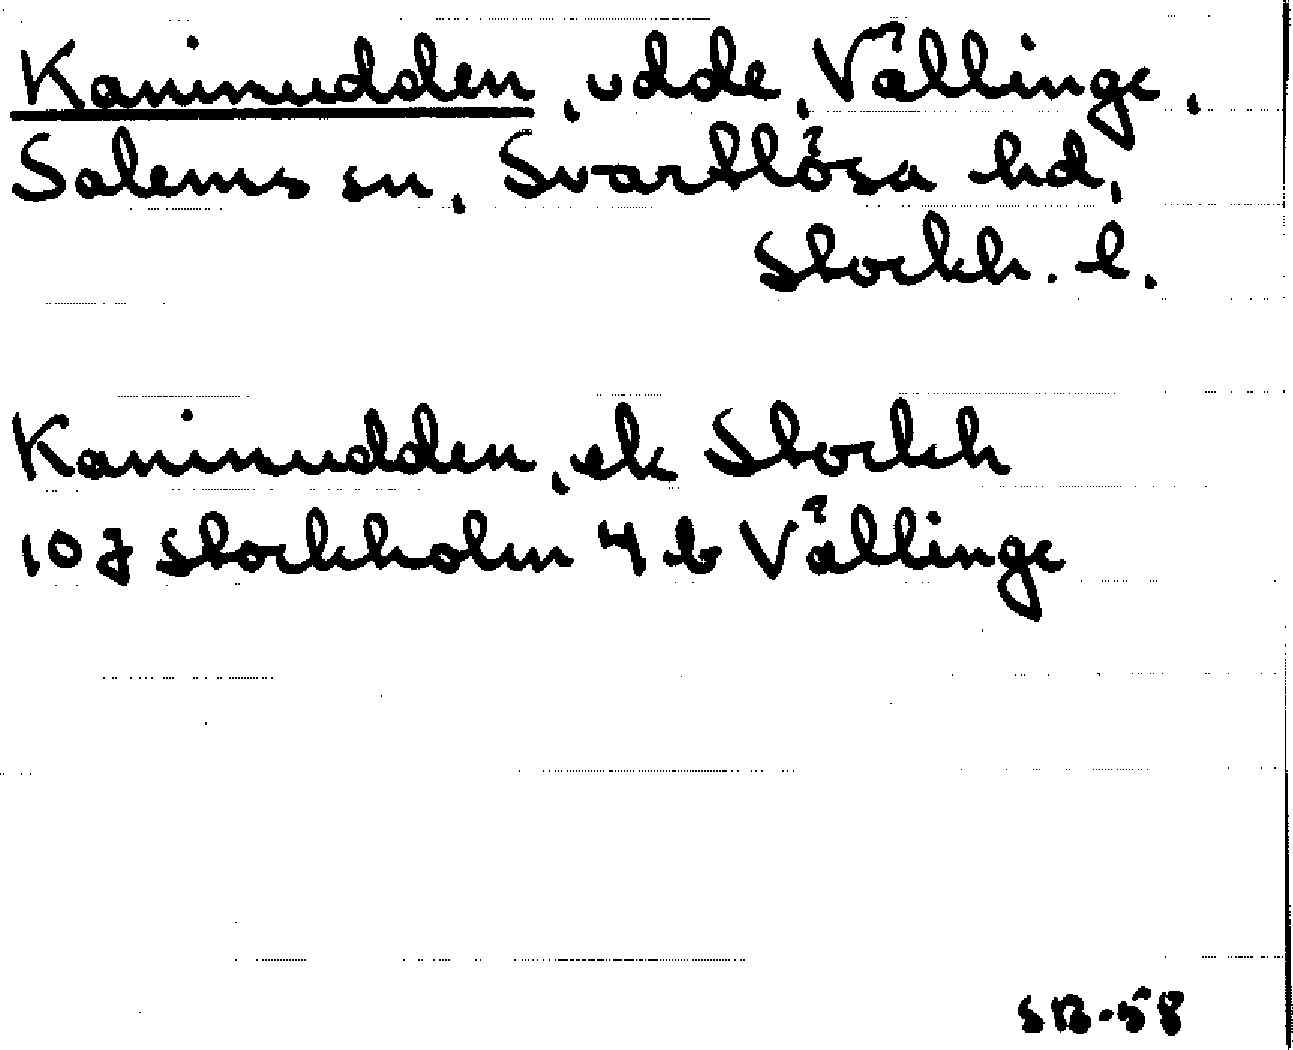 Kaninudden, udde, Vällinge,
Salems sn, Svartlösa hd,
Stockh. l.
Kaninudden, ek Stockh
10 J Stockholm 4 b Vällinge
SB-58